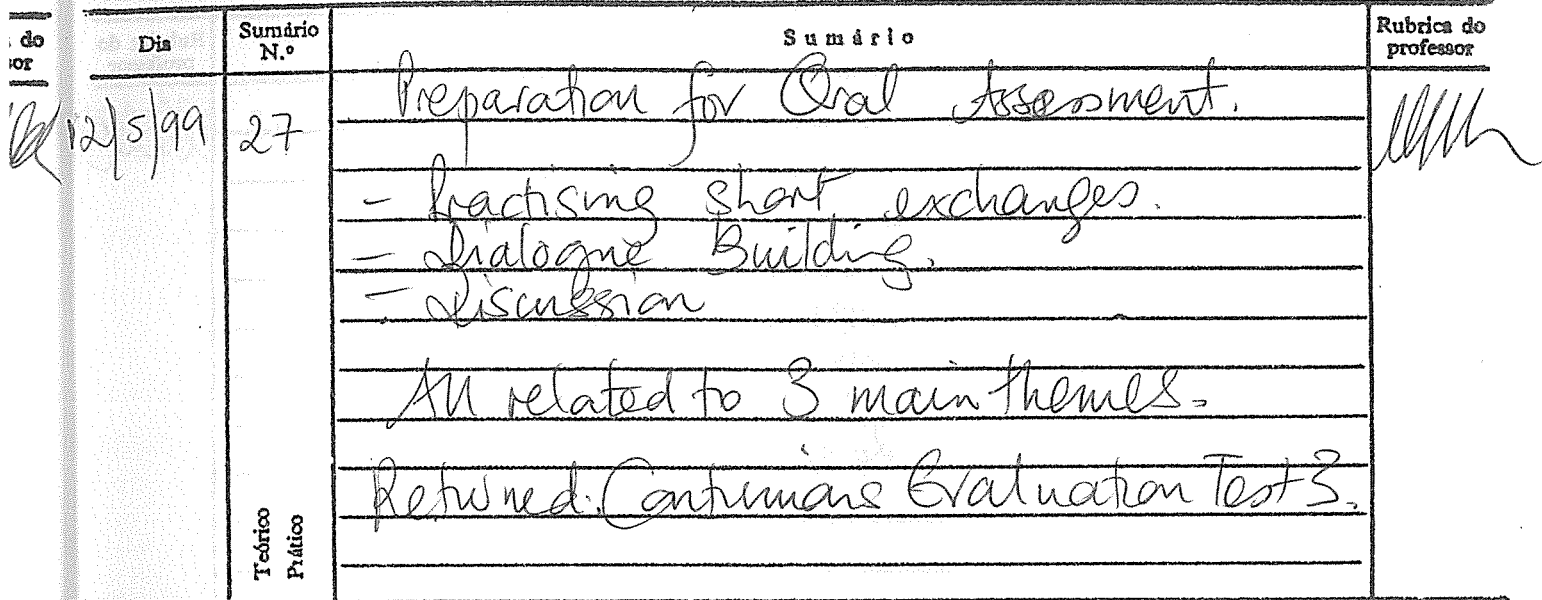 do Dia Sumário N.º Sumário Rubrica do professor
or
12/5/99 27 Preparation for Oral Assessment.
- Practising short exchanges.
- Dialogue Building.
- Discussion
All related to 3 main themes.
Returned: Continuous Evaluation Test 3.
Teórico
Prático